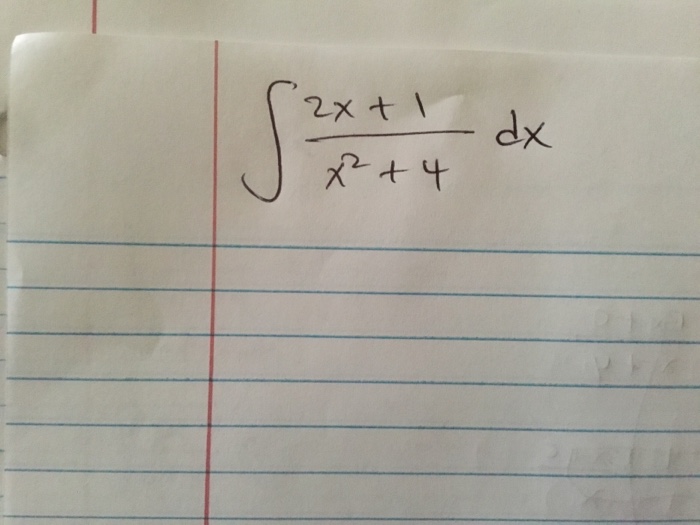 ∫ (2x + 1)/(x² + 4) dx